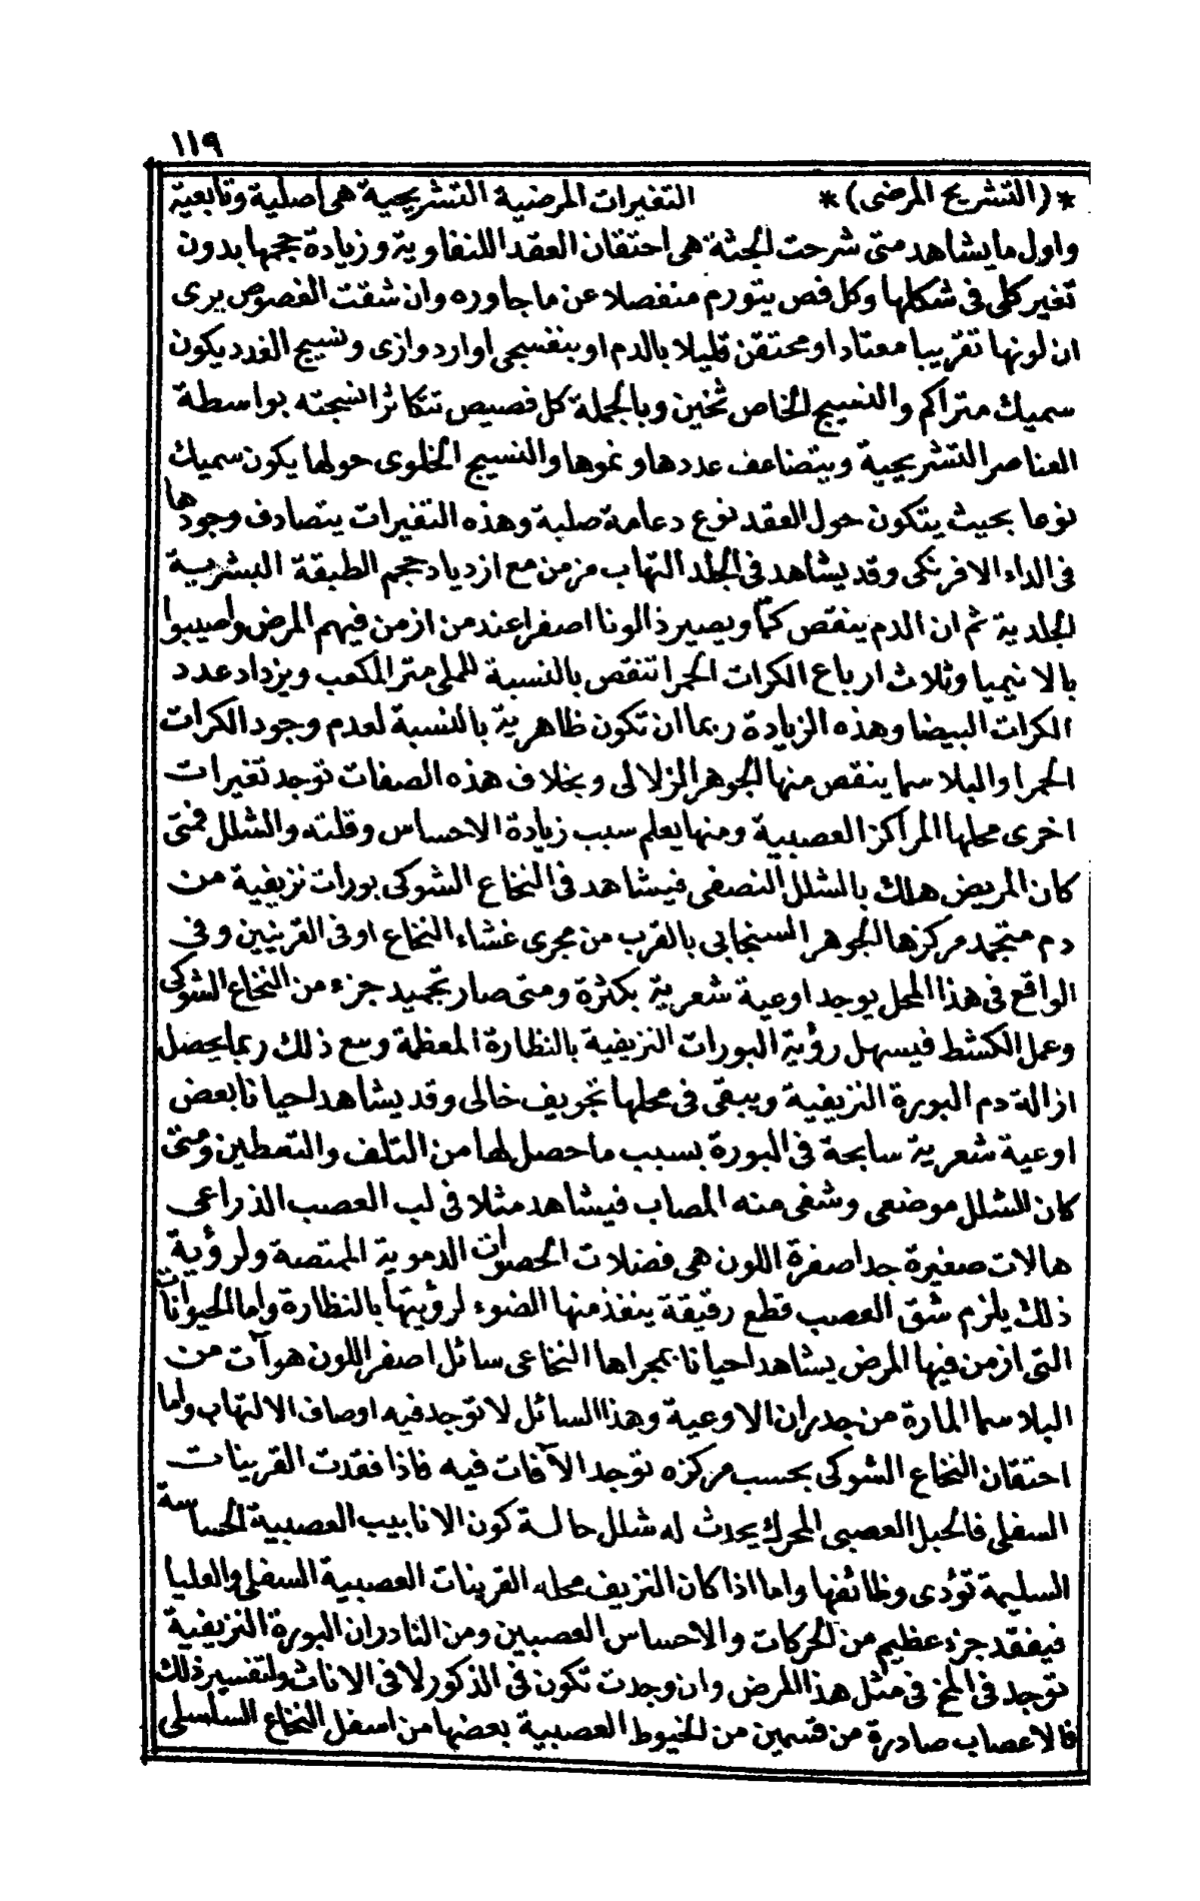 ١١٩
*(التشريح المرضى)* التغيرات المرضية التشريحية هى اصلية وتابعية
واول ما يشاهد متى شرحت الجثة هى احتقان العقد اللنفاوية وزيادة حجمها بدون
تغير كلى فى شكلها وكل فص يتورم منفصلا عن ما جاوره وان شقت الفصوص يرى
ان لونها تقريبا معتاد او محتقن قليلا بالدم او بنفسجى او اردوازى ونسيج الغدد يكون
سميك متراكم والنسيج الخاص ثخين وبالجملة كل فصيص تتكاثر انسجته بواسطة
العناصر التشريحية ويتضاعف عددها ونموها والنسيج الخلوى حولها يكون سميك
نوعا بحيث يتكون حول العقد نوع دعامة صلبة وهذه التغيرات يتصادف وجودها
فى الداء الافرنكى وقد يشاهد فى الجلد التهاب مزمن مع ازدياد حجم الطبقة البشرية
الجلدية ثم ان الدم ينقص كمّا ويصير ذا لونا اصفرا عند من ازمن فيهم المرض واصيبوا
بالانيميا وثلاث ارباع الكرات الحمرا تنقص بالنسبة للملى متر المكعب ويزداد عدد
الكرات البيضا وهذه الزيادة ربما ان تكون ظاهرية بالنسبة لعدم وجود الكرات
الحمرا والبلاسما ينقص منها الجوهر الزلالى وبخلاف هذه الصفات توجد تغيرات
اخرى محلها المراكز العصبية ومنها يعلم سبب زيادة الاحساس وقلته والشلل فمتى
كان المريض هلك بالشلل النصفى فيشاهد فى النخاع الشوكى بورات نزيفية من
دم متجمد مركزها الجوهر السنجابى بالقرب من مجرى غشاء النخاع او فى القرينين وفى
الواقع فى هذا المحل يوجد اوعية شعرية بكثرة ومتى صار تجميد جزء من النخاع الشوكى
وعمل الكشط فيسهل رؤية البورات النزيفية بالنظارة المعظمة ومع ذلك ربما يحصل
ازالة دم البورة النزيفية ويبقى فى محلها تجويف خالى وقد يشاهد احيانا بعض
اوعية شعرية سابحة فى البورة بسبب ما حصل لها من التلف والتعطين ومتى
كان الشلل موضعى وشفى منه المصاب فيشاهد مثلا فى لب العصب الذراعى
هالات صغيرة جدا صفرة اللون هى فضلات الدموية الممتصة ولرؤية
ذلك يلزم شق العصب قطع رقيقة ينفذ منها الضوء لرؤيتها بالنظارة واما الحيوانات
التى ازمن فيها المرض يشاهد احيانا بمجراها النخاعى سائل اصفر اللون هو آت من
البلاسما المارة من جدران الاوعية وهذا السائل لا توجد فيه اوصاف الالتهاب واما
احتقان النخاع الشوكى بحسب مركزه توجد الآفات فيه فاذا فقدت القرينات
السفلى فالحبل العصبى المحرك يحدث له شلل حالة كون الانابيب العصبية الحساسة
السليمة تؤدى وظائفها واما اذا كان النزيف محله القرينات العصبية السفلى والعليا
فيفقد جزء عظيم من الحركات والاحساس العصبيين ومن النادر ان البورة النزيفية
توجد فى المخ فى مثل هذا المرض وان وجدت تكون فى الذكور لا فى الاناث ولتفسير ذلك
فالاعصاب صادرة من قسمين من الخيوط العصبية بعضها من اسفل النخاع السلسلى